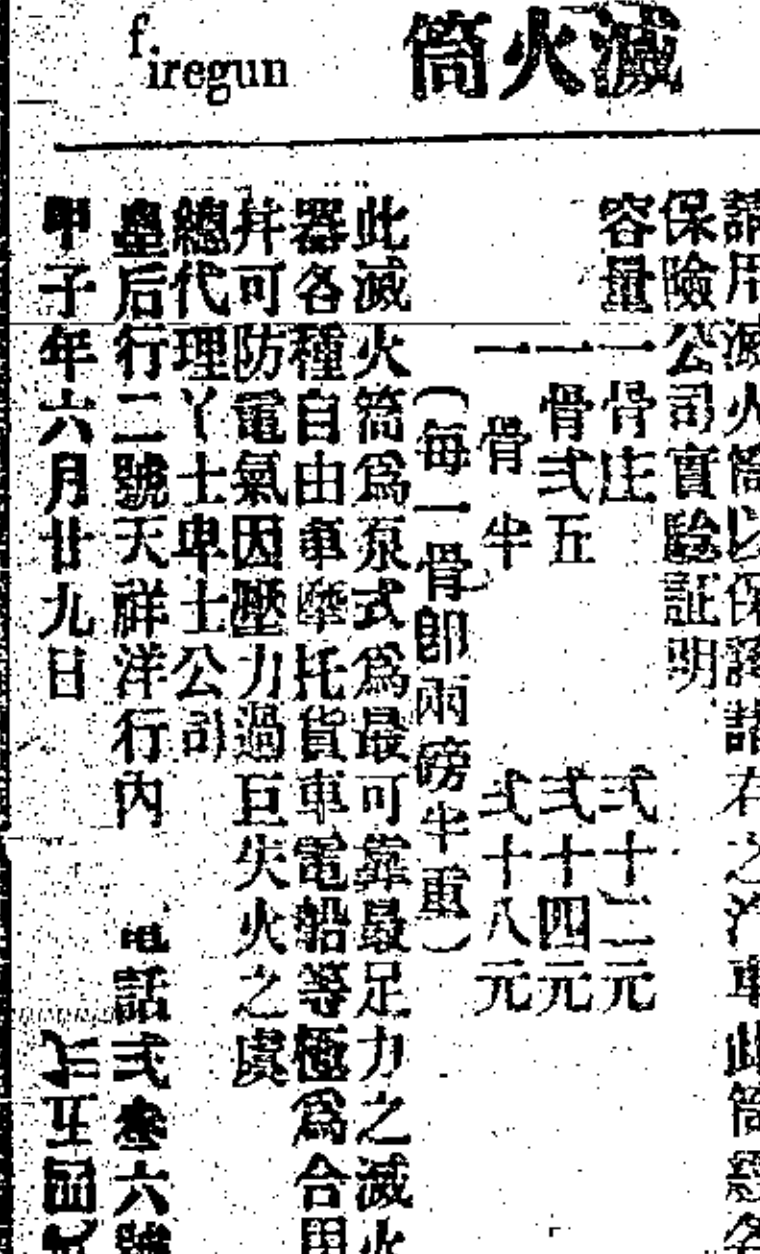 滅火筒
firegun
請用滅火筒以保護諸君之汽車此筒經各
保險公司實驗証明
容量一骨庄 弍十二元
一骨弍五 弍十四元
一骨半 弍十八元
(每一骨即兩磅半重)
此滅火筒為泵式為最可靠最足力之滅火
器各種自由車摩托貨車電船等極為合用
并可防電氣因壓力過巨失火之虞
總代理丫士卑士公司
皇后行二號天祥洋行內 電話弍叁六號
甲子年六月廿九日